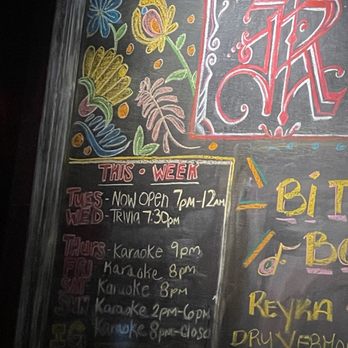 R
THIS · WEEK
TUES - NOW OPEN 7PM-12AM
WED - TRIVIA 7:30PM
THURS - KARAOKE 9PM
FRI KARAOKE 8PM
SAT KARAOKE 8PM
SUN KARAOKE 2PM-6PM
KARAOKE 8PM-CLOSE
BI
BO
REYKA
DRY VERMO